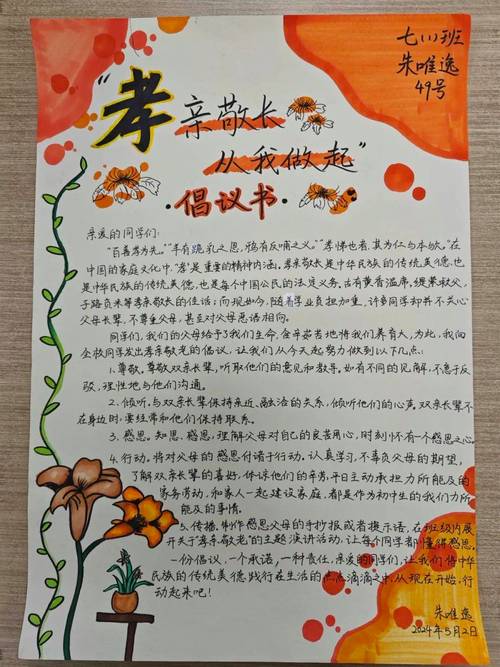 七(1)班
朱唯逸
49号
“孝亲敬长
从我做起”
·倡议书·
亲爱的同学们:
“百善孝为先。”“羊有跪乳之恩,鸦有反哺之义。”“孝悌也者,其为仁与本欤。”在
中国的家庭文化中,“孝”是重要的精神内涵。孝亲敬长是中华民族的传统美德,也
是传统美德,也是每个中国公民的法定义务。古有黄香温席,缇萦救父,
子路负米等孝亲敬长的佳话;而现如今,随着学业负担加重,许多同学却并不关心
父母长辈,不尊重父母,甚至对父母恶语相向。
同学们,我们的父母给予了我们生命,含辛茹苦地将我们养育大,为此,我向
全校同学发出孝亲敬老的倡议,让我们从今天起努力做到以下几点:
1.尊敬。尊敬双亲长辈,听取他们的意见和教导。如有不同的见解,不急于反
驳,理性地与他们沟通。
2.倾听。与双亲长辈保持亲近、融洽的关系,倾听他们的心声。双亲长辈不
在身边时,要经常和他们保持联系。
3.感恩。知恩、感恩,理解父母对自己的良苦用心,时刻怀有一个感恩之心。
4.行动。将对父母的感恩付诸于行动。认真学习,不辜负父母的期望,
了解双亲长辈的喜好,体谅他们的辛劳,平日主动承担力所能及的
家务劳动,和家人一起建设家庭,都是作为初中生的我们力所
能及的事情。
5.传播。制作感恩父母的手抄报或者提示语,在班级内展
开关于“孝亲敬老”的主题演讲活动,让每个同学都懂得感恩。
一份倡议,一个承诺,一种责任。亲爱的同学们,让我们传中华
民族的传统美德践行在生活的点点滴滴之中,从现在开始,行
动起来吧!
朱唯逸
2024年5月2日